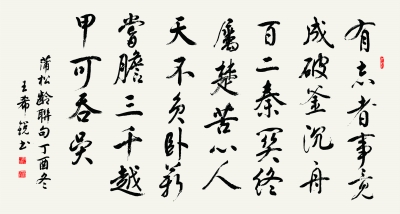 有志者事竟
成破釜沉舟
百二秦關終
屬楚苦心人
天不負卧薪
嘗膽三千越
甲可吞吴
蒲松齡聯句丁酉冬
王希书